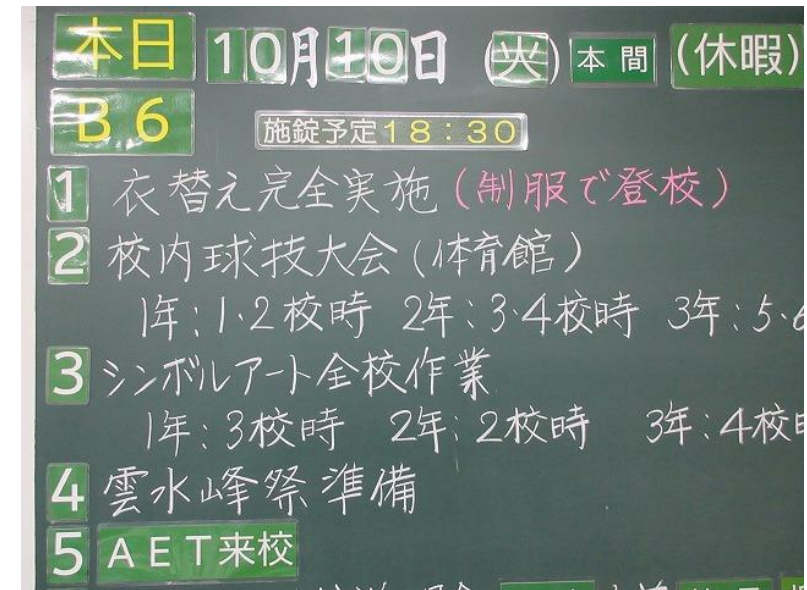 本日 10月10日 (火) 本間 (休暇)
B6 施錠予定18:30
1 衣替え完全実施(制服で登校)
2 校内球技大会(体育館)
1年:1・2校時 2年:3・4校時 3年:5・6
3 シンボルアート全校作業
1年:3校時 2年:2校時 3年:4校時
4 雲水峰祭準備
5 AET来校